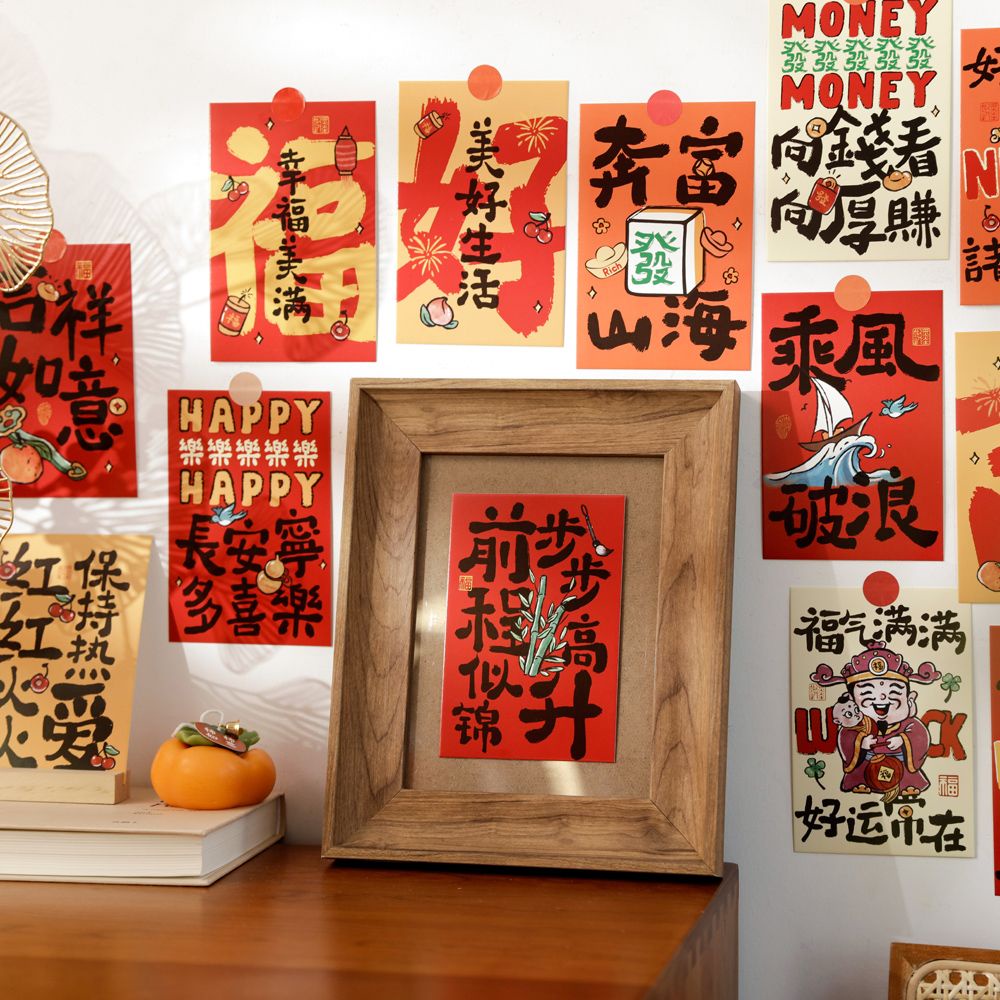 福
幸福美满
好
美好生活
奔富
發
Rich
山海
MONEY
發發發發發
MONEY
向錢看
向厚賺
好
N
吉祥
如意
HAPPY
樂樂樂樂樂
HAPPY
長安寧
多喜樂
乘風
破浪
步步高升
前程似锦
保持热爱
红红火火
福气满满
W CK
好运常在